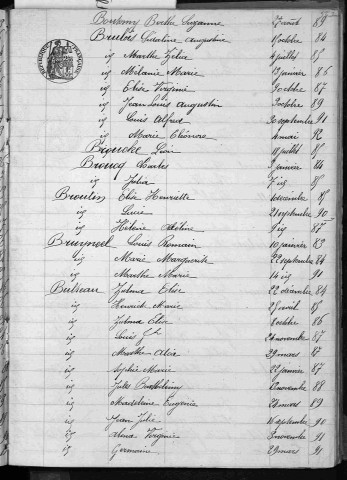 Boutemy Berthe Suzanne 7 août 89
Breton Céraline Augustine 18 octobre 84
id Marthe Zélia 4 juillet 85
id Mélanie Marie 13 janvier 86
id Elise Virginie 9 octobre 87
id Jean Louis Augustin 2 octobre 89
id Louis Alfred 30 septembre 91
id Marie Eléonore 4 mai 92
Broucke Léon 11 juillet 85
Broucq Charles 9 janvier 84
id Julia 7 id 85
Broutin Elise Henriette décembre 85
id Lucie 21 septembre 90
id Hélène 9 id 87
Bruyneel Louis Romain 10 janvier 83
id Marie Marguerite 22 septembre 84
id Marthe Marie 14 id 91
Bulteau Zulma Elise 22 décembre 84
id Marie 25 avril 85
id Zulma Elise octobre 86
id Louis 21 novembre 87
id Marthe Alix 29 mars 87
id Sophie Marie janvier 87
id Jules Barthélémy novembre 88
id Madeleine Eugénie 28 mars 89
id Jean Julie 16 septembre 90
id Alma Virginie novembre 91
id Germaine 29 mars 91